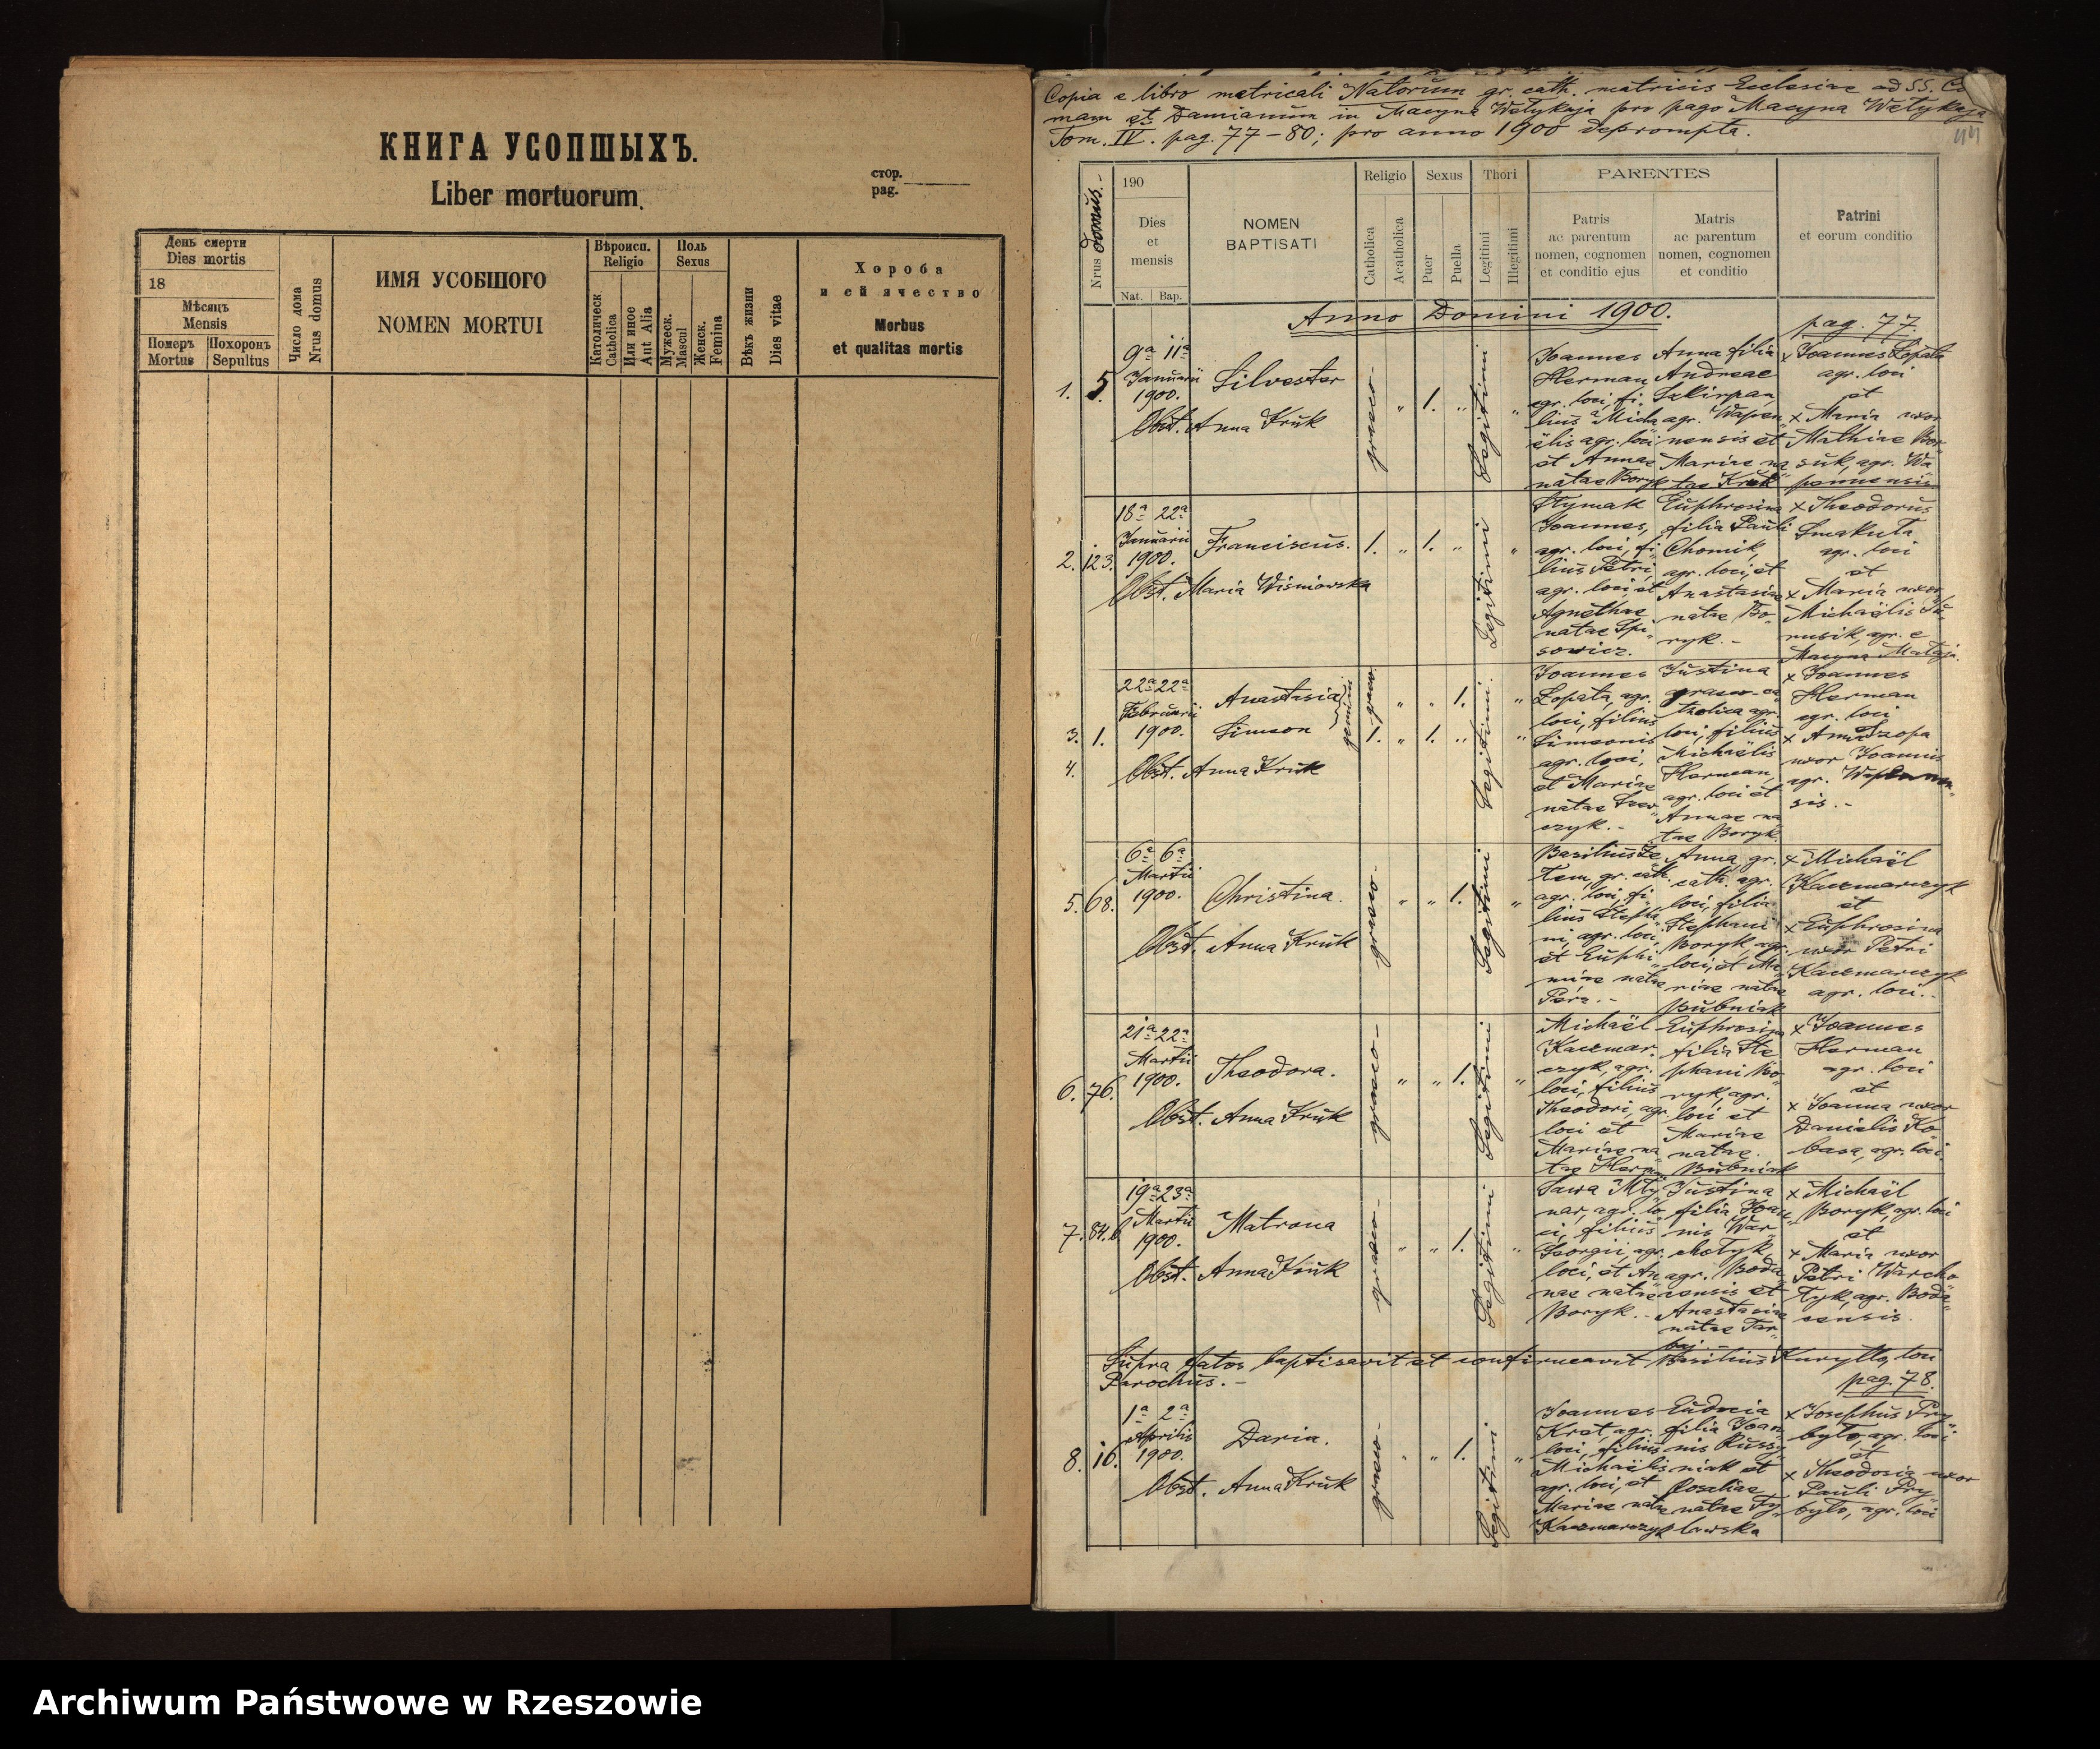 КНИГА УСОПШЫХЪ.
Liber mortuorum.
стор.
pag.
День смерти
Dies mortis
18
Мѣсяцъ
Mensis
Померъ
Mortus
Похоронъ
Sepultus
Число дома
Nrus domus
ИМЯ УСОБШОГО
NOMEN MORTUI
Вѣроисп.
Religio
Католическ
Catholica
Или иное
Aut Alia
Поль
Sexus
Мужеск.
Mascul
Женск.
Femina
Вѣкъ жизни
Dies vitae
Хороба
и ей ячество
Morbus
et qualitas mortis
Copia e libro metricali Natorum gr. cath. matricis Ecclesiae ad SS. Cos
mam et Damianum in Macyna Wełykaja pro pago Macyna Wełykaja
Tom. IV. pag. 77-80; pro anno 1900 deprompta.
44
Nrus domus.
190
Dies
et
mensis
Nat. Bap.
NOMEN
BAPTISATI
Religio
Catholica
Acatholica
Sexus
Puer
Puella
Thori
Legitimi
Illegitimi
PARENTES
Patris
ac parentum
nomen, cognomen
et conditio ejus
Matris
ac parentum
nomen, cognomen
et conditio
Patrini
et eorum conditio
Anno Domini 1900.
pag. 77.
1. 5.
9a 11a
Januarii
1900.
Silvester
Obst. Anna Kruk
graeco-
" 1. " "
Legitimi
Joannes
Herman
agr. loci, fi-
lius Micha
ëlis agr. loci
et Annae
natae Boryk
Anna filia
Andreae
Sekirpan
agr. Wapen
nensis et
Mariae na
tae Kruk
x Joannes Łopata
agr. loci
et
x Maria uxor
Mathiae Bor-
suk, agr. Wa
pennensis
2. 123.
18a 22a
Januarii
1900.
Franciscus.
Obst. Maria Wiśniowska
1. " 1. " "
Legitimi
Stymak
Joannes,
agr. loci, fi
lius Petri,
agr. loci et
Agnethae
natae Spi-
sowicz.
Euphrosina
filia Pauli
Chomik,
agr. loci, et
Anastasiae
natae Bo-
ryk. -
x Theodorus
Smakuta
agr. loci
et
x Maria uxor
Michaëlis
nusik, agr. e
Macyna Małaja.
3. 1.
4.
22a 22a
Februarii
1900.
Anastasia
Simeon
gemini
Obst. Anna Kruk
1. graeco
" " 1. "
1. " 1. " "
Legitimi.
Joannes
Łopata, agr.
loci, filius
Simeonis
agr. loci,
et Mariae
natae Szew
czyk. -
Justina
graeco-ca
tholica agr.
loci, filius
Michaëlis
Herman,
agr. loci et
Annae na
tae Boryk.
x Joannes
Herman
agr. loci
x Anna Szopa
uxor Joannis
agr. Wapennen-
sis. -
5. 68.
6a 6a
Martii
1900.
Christina.
Obst. Anna Kruk
graeco-
" " 1. "
Legitimi
Basilius Fe
tem, gr. cath.
agr. loci, fi-
lius Stepha
ni, agr. loci,
et Euphi-
miae natae
Anna, gr.
cath. agr.
loci, filia
Stephani
Boryk, agr.
loci, et Ma
riae natae
Bubniak
x Michaël
Kaczmarczyk
et
x Euphrosina
uxor Petri
Kaczmarczyk
agr. loci. -
6. 76.
21a 22a
Martii
1900.
Theodora.
Obst. Anna Kruk
graeco-
" " 1. "
Legitimi
Michaël
Kaczmar-
czyk, agr.
loci, filius
Theodori, agr.
loci et
Mariae na
tae Herman
Euphrosina
filia Ste
phani Bo-
ryk, agr.
loci et
Mariae
natae.
Bubniak
x Joannes
Herman
agr. loci
et
x Joanna uxor
Danielis Ko
basa, agr. loci
7. 84.b
19a 23a
Martii
1900.
Matrona
Obst. Anna Kruk
graeco-
" " 1. "
Legitimi
Sawa Mły
nar, agr. lo
ci, filius
Georgii, agr.
loci, et An
nae natae
Boryk. -
Justina
filia Joan
nis War-
chołyk,
agr. Boda
censis et
Anastasiae
natae Tar-
baj. -
x Michaël
Boryk, agr. loci
et
x Maria uxor
Petri Warcho
łyk, agr. Boda
censis.
Supra fatos baptisavit et confirmavit Basilius Kuryłło, loci
Parochus. -
pag. 78.
8. 16.
1a 2a
Aprilis
1900.
Daria.
Obst. Anna Kruk
graeco-
" " 1. "
Legitimi
Joannes
Kret, agr.
loci, filius
Michaëlis
agr. loci, et
Mariae natae
Kaczmarczyk
Eudocia
filia Joan
nis Russy
niak et
Rosaliae
natae Ty-
lawska
x Josephus Pry-
było, agr. loci
et
x Theodosia uxor
Pauli Pry-
było, agr. loci
Archiwum Państwowe w Rzeszowie